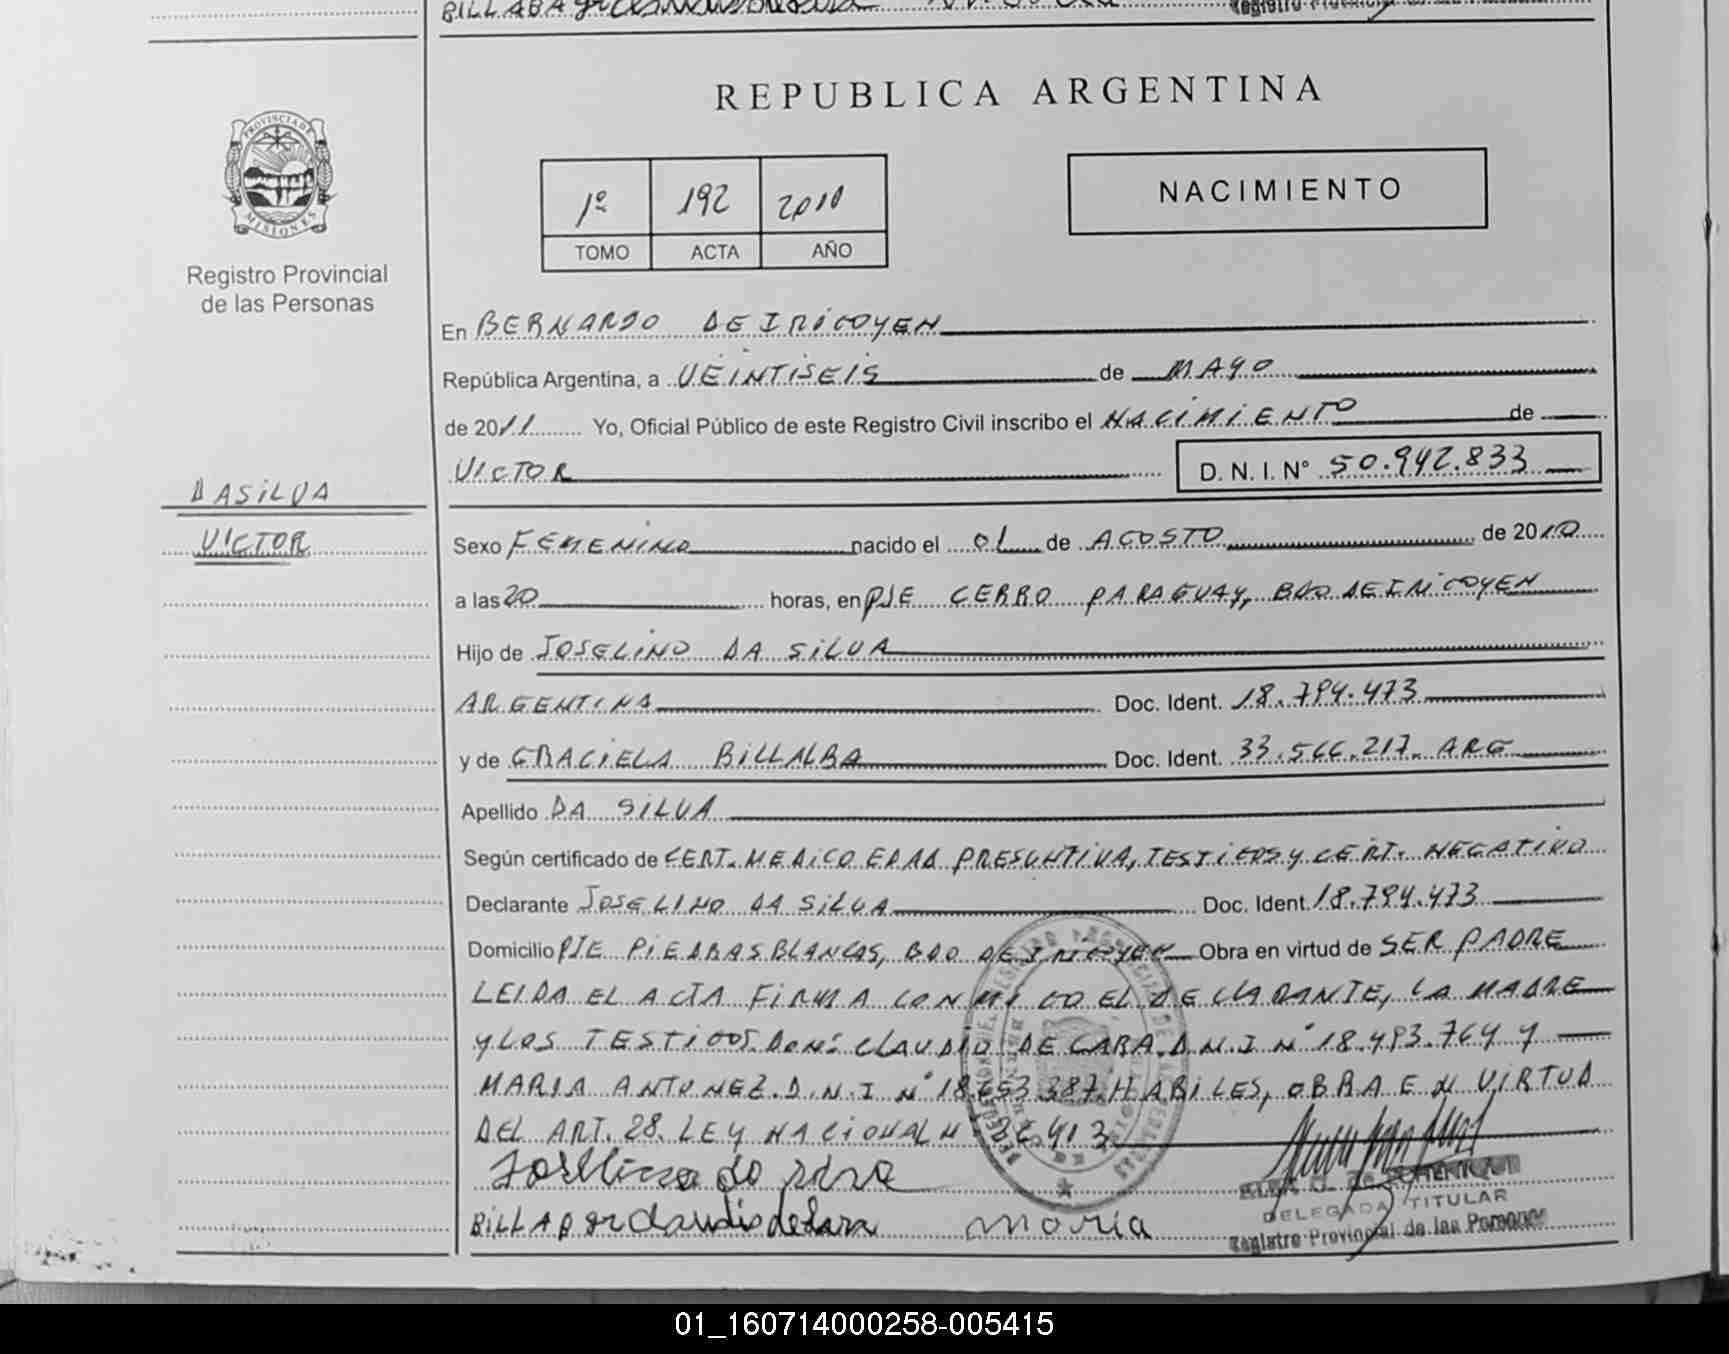 REPUBLICA ARGENTINA
PROVINCIA DE
MISIONES
Registro Provincial
de las Personas
1º 192 2010
TOMO ACTA AÑO
NACIMIENTO
En BERNARDO DE IRIGOYEN
República Argentina, a VEINTISEIS de MAYO
de 2011 Yo, Oficial Público de este Registro Civil inscribo el NACIMIENTO de
VICTOR D. N. I. Nº 50.942.833
DASILVA
VICTOR
Sexo FEMENINO nacido el 01 de AGOSTO de 2010
a las 20 horas, en PJE CERRO PARAGUAY, BDO DE IRIGOYEN
Hijo de JOSELINO DA SILVA
ARGENTINA Doc. Ident. 18.794.473
y de GRACIELA BILLALBA Doc. Ident. 33.566.217. ARG
Apellido DA SILVA
Según certificado de CERT. MEDICO EDAD PRESUNTIVA, TESTIGOS Y CERT. NEGATIVO
Declarante JOSELINO DA SILVA Doc. Ident. 18.794.473
Domicilio PJE PIEDRAS BLANCAS, BDO DE IRIGOYEN Obra en virtud de SER PADRE
LEIDA EL ACTA FIRMA CONMIGO EL DECLARANTE, LA MADRE
Y LOS TESTIGOS. DON: CLAUDIO DE CARA. D.N.I Nº 18.493.764 Y
MARIA ANTUNEZ. D.N.I Nº 18.653.387. HABILES, OBRA EN VIRTUD
DEL ART. 28. LEY NACIONAL Nº 26.413
DELEGADA TITULAR
Registro Provincial de las Personas
maria
01_160714000258-005415